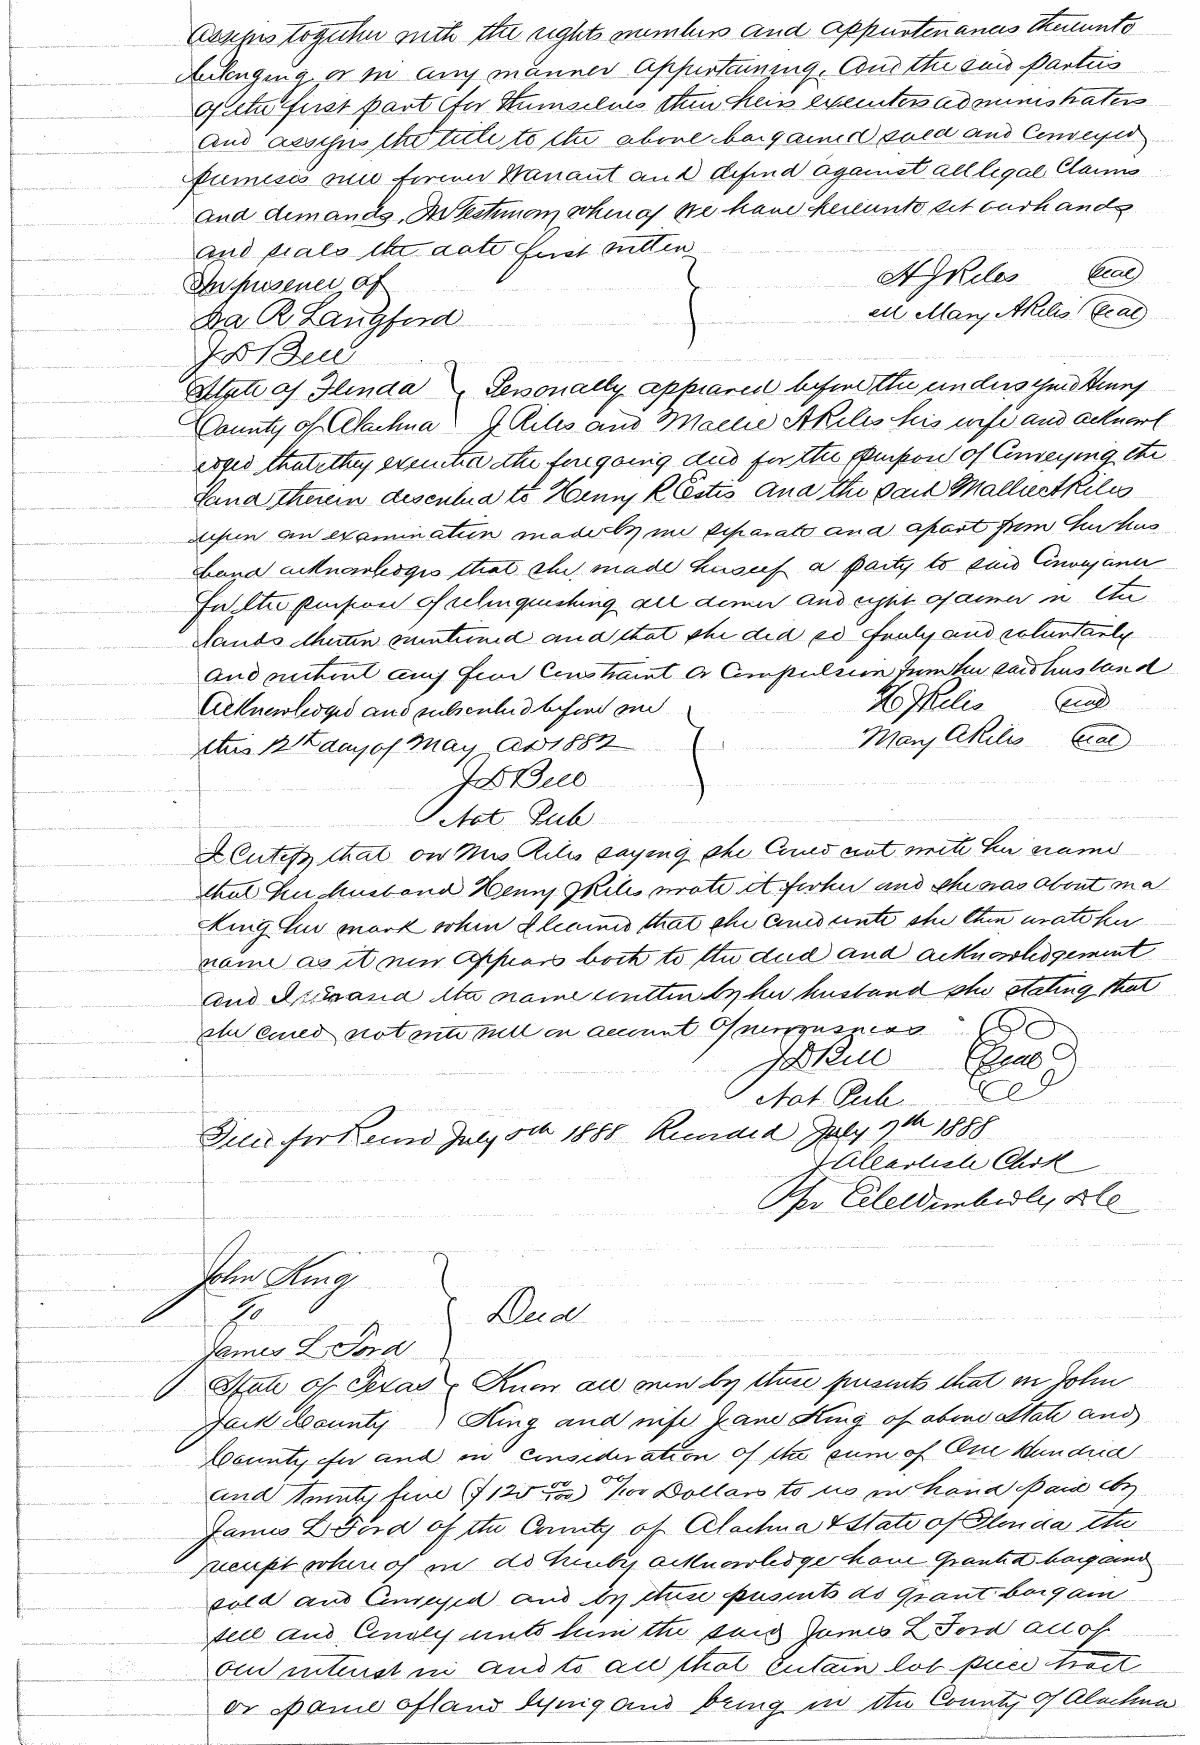 assigns together with the rights members and appurtenances thereunto
belonging or in any manner appertaining. And the said parties
of the first part for themselves their heirs executors administrators
and assigns the title to the above bargained sold and conveyed
premises will forever Warrant and defend against all legal Claims
and demands. In Testimony whereof we have hereunto set our hands
and seals the date first written
In presence of
H J Riles (seal)
Ira R Langford
Mary A Riles (seal)
J D Bell
State of Florida } Personally appeared before the undersigned Henry
County of Alachua J Riles and Mallie A Riles his wife and acknowl
edged that they executed the foregoing deed for the purpose of Conveying the
Land therein described to Henry R Estis and the said Mallie A Riles
upon an examination made by me separate and apart from her hus
band acknowledges that she made herself a party to said Conveyance
for the purpose of relinquishing all dower and right of dower in the
lands therein mentioned and that she did so freely and voluntarily
and without any fear Constraint or Compulsion from her said husband
Acknowledged and subscribed before me
H J Riles (seal)
this 12th day of May AD 1882
Mary A Riles (seal)
J D Bell
Not Pub
I Certify that on Mrs Riles saying she Could not write her name
that her husband Henry J Riles wrote it for her and she was about ma
king her mark when I learned that she Could write she then wrote her
name as it now appears both to the deed and acknowledgement
and I erased the name written by her husband she stating that
she could not write well on account of nervousness
J D Bell (Seal)
Not Pub
Filed for Record July 5th 1888 Recorded July 7th 1888
J A Carlisle Clerk
Per Wimberly D C
John King
To } Deed
James L Ford
State of Texas } Know all men by these presents that we John
Jack County ) King and wife Jane King of above State and
County for and in consideration of the sum of One Hundred
and twenty five ($125 00/100) 00/100 Dollars to us in hand paid by
James L Ford of the County of Alachua & State of Florida the
receipt where of we do hereby acknowledge have granted bargained
sold and Conveyed and by these presents do grant bargain
sell and Convey unto him the said James L Ford all of
our interest in and to all that certain lot piece tract
or parcel of land lying and being in the County of Alachua